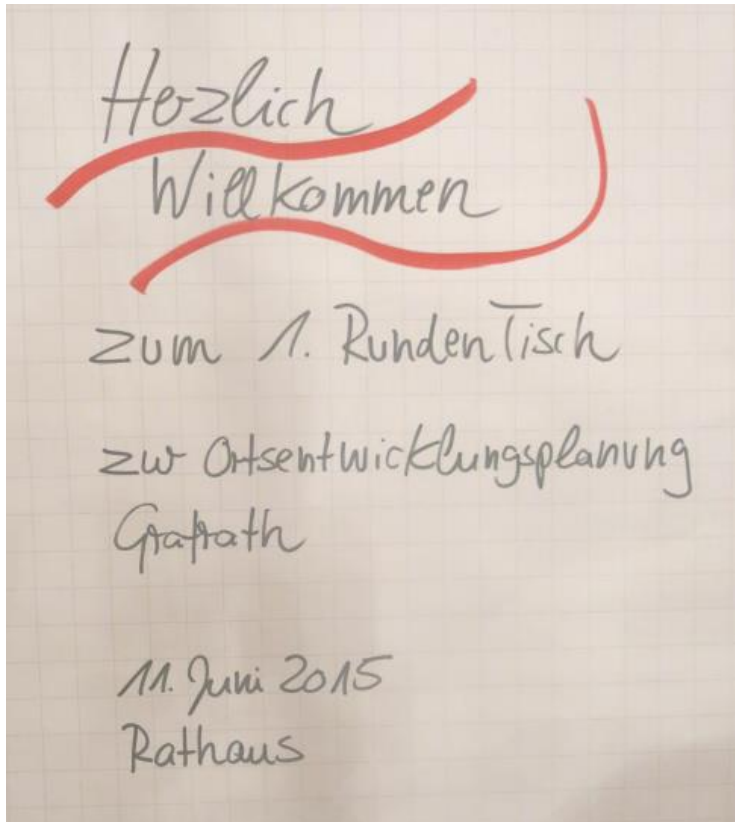 Herzlich
Willkommen
zum 1. Runden Tisch
zur Ortsentwicklungsplanung
Grafrath
11. Juni 2015
Rathaus